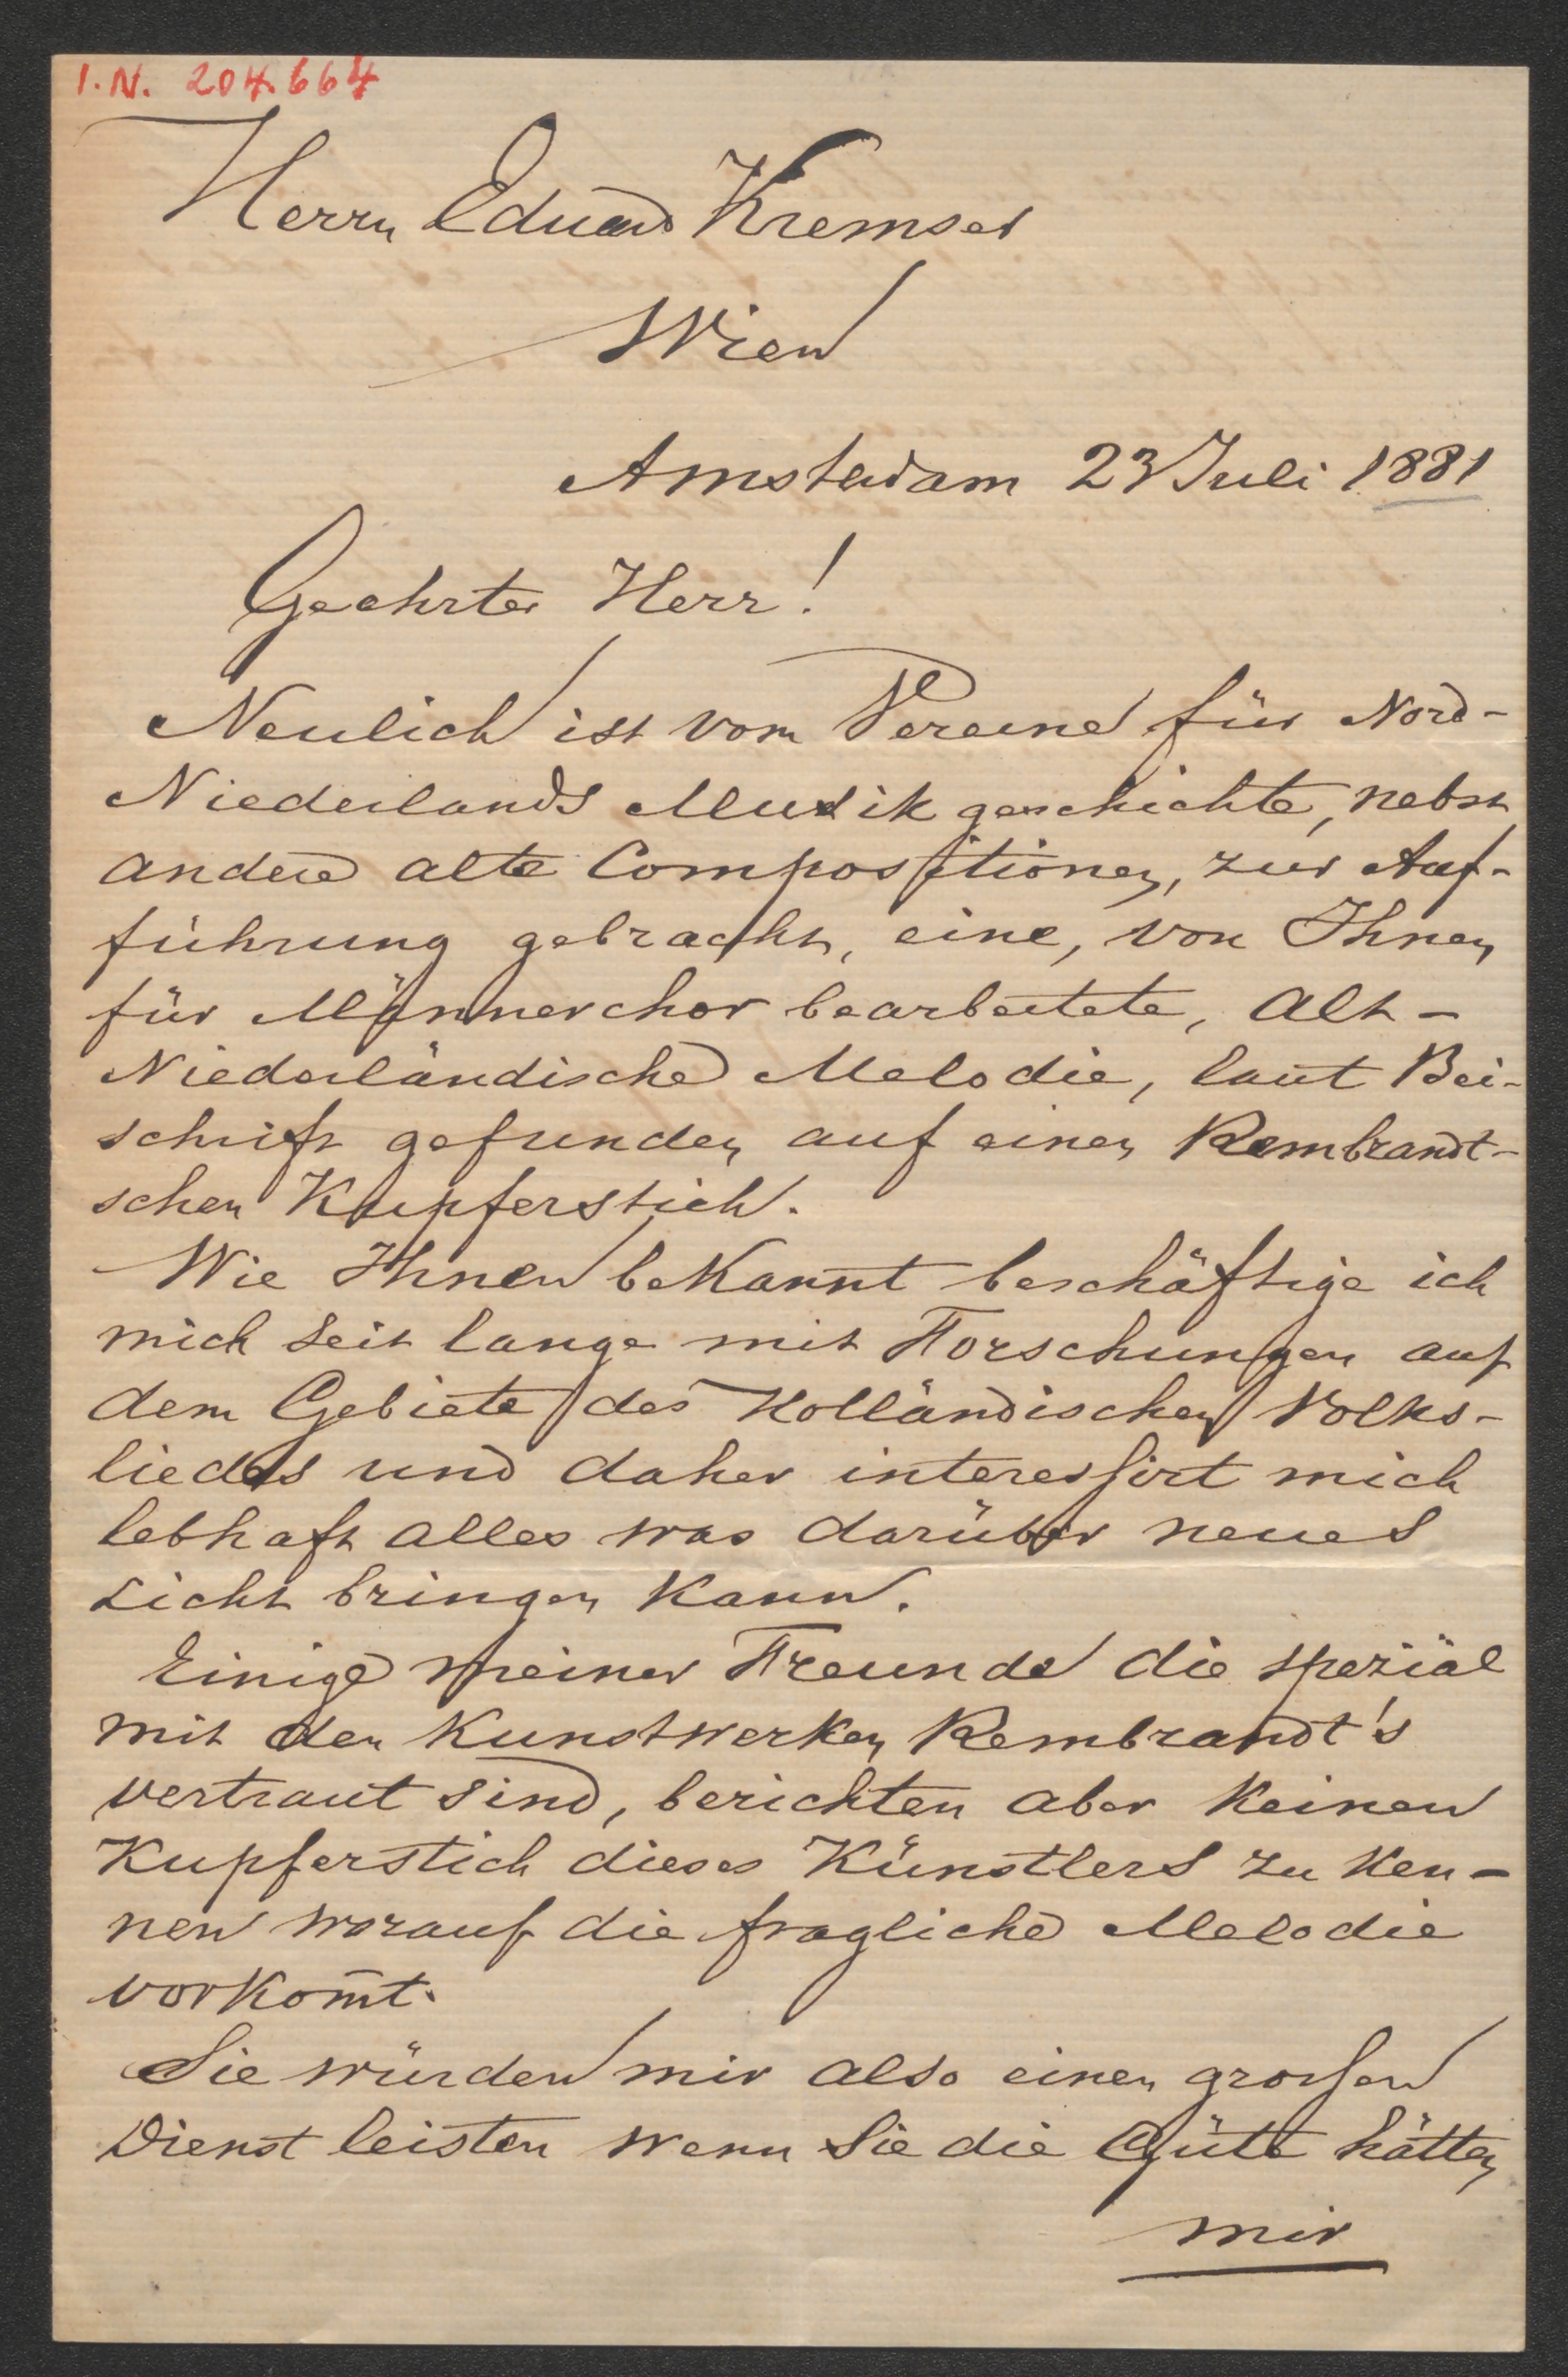 I.N. 204.664
Herrn Eduard Kremser
Wien
Amsterdam 23 Juli 1881
Geehrter Herr!
Neulich ist vom Vereine für Nord-
Niederlands Musik geschichte, nebst
andere alte Compositionen, zur Auf-
führung gebracht, eine, von Ihnen
für Männerchor bearbeitete, Alt-
Niederländische Melodie, laut Bei-
schrift gefunden auf einen Rembrandt-
schen Kupferstich.
Wie Ihnen bekannt beschäftige ich
mich seit lange mit Forschungen auf
dem Gebiete des Holländischen Volks-
liedes und daher interessirt mich
lebhaft alles was darüber neues
Licht bringen kann.
Einige meiner Freunde die speziäl
mit den Kunstwerken Rembrandt's
vertraut sind, berichten aber keinen
Kupferstich dieses Künstlers zu ken-
nen worauf die fragliche Melodie
vorkom̄t.
Sie würden mir also einen grossen
Dienst leisten wenn Sie die Güte hätten
mir